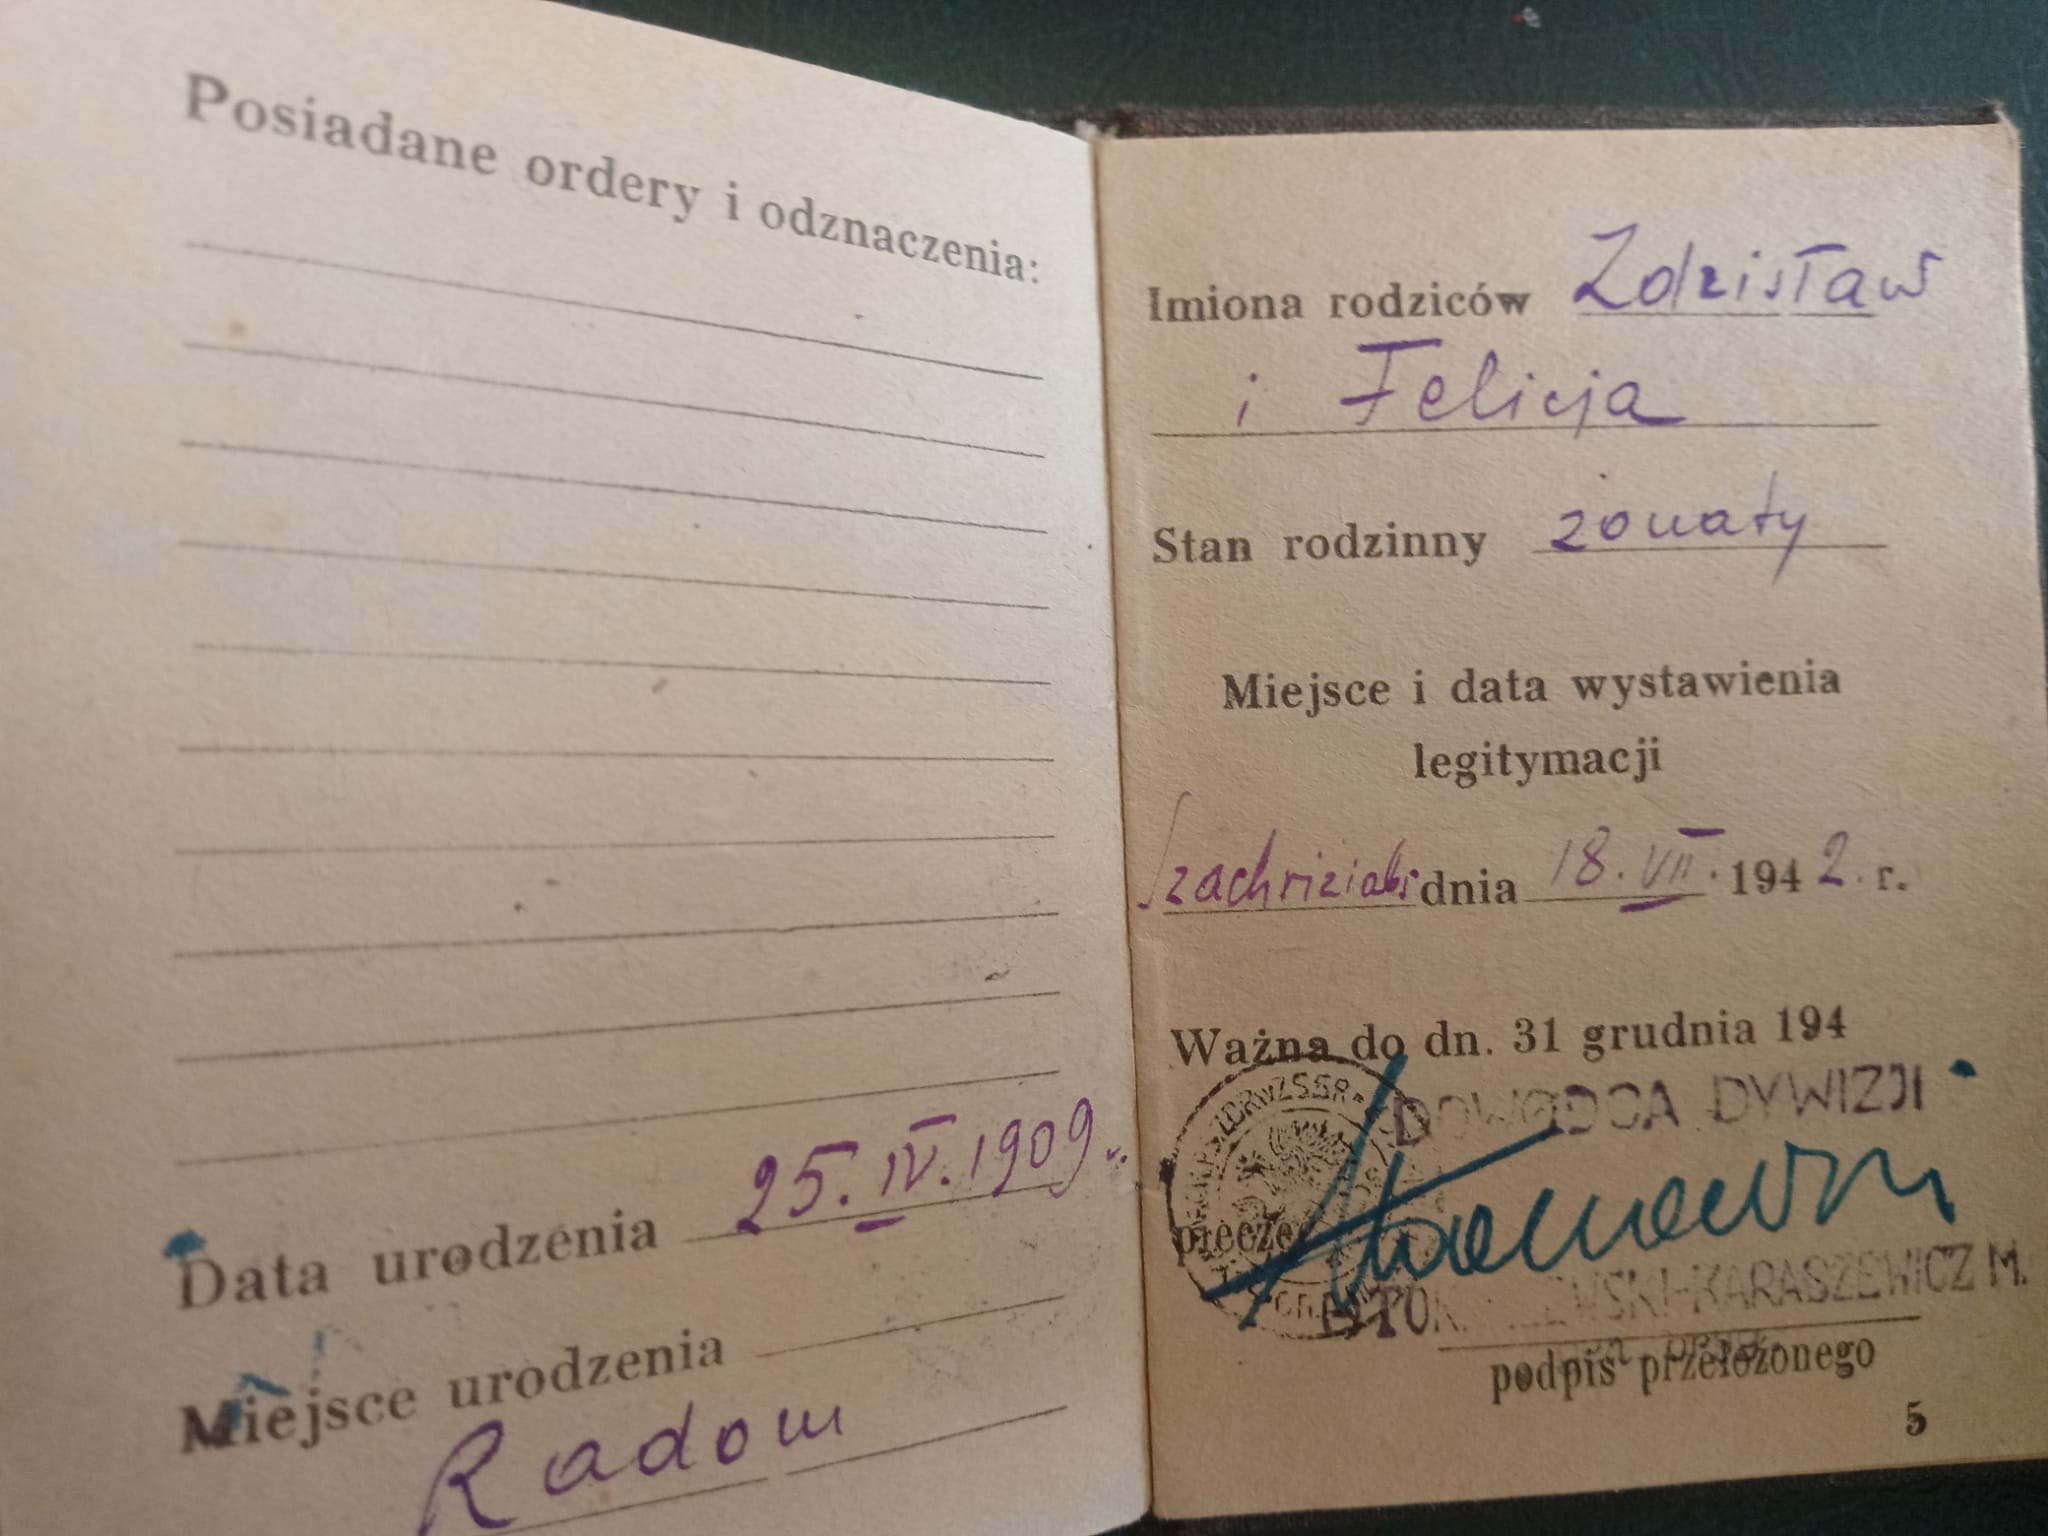 Posiadane ordery i odznaczenia:
Data urodzenia 25.IV.1909.
Miejsce urodzenia
Radom
Imiona rodziców Zdzisław
i Felicja
Stan rodzinny żonaty
Miejsce i data wystawienia
legitymacji
dnia 18.VII.1942. r.
Ważna do dn. 31 grudnia 194
DOWÓDCA DYWIZJI
KARASZEWICZ M.
podpis przełożonego
5